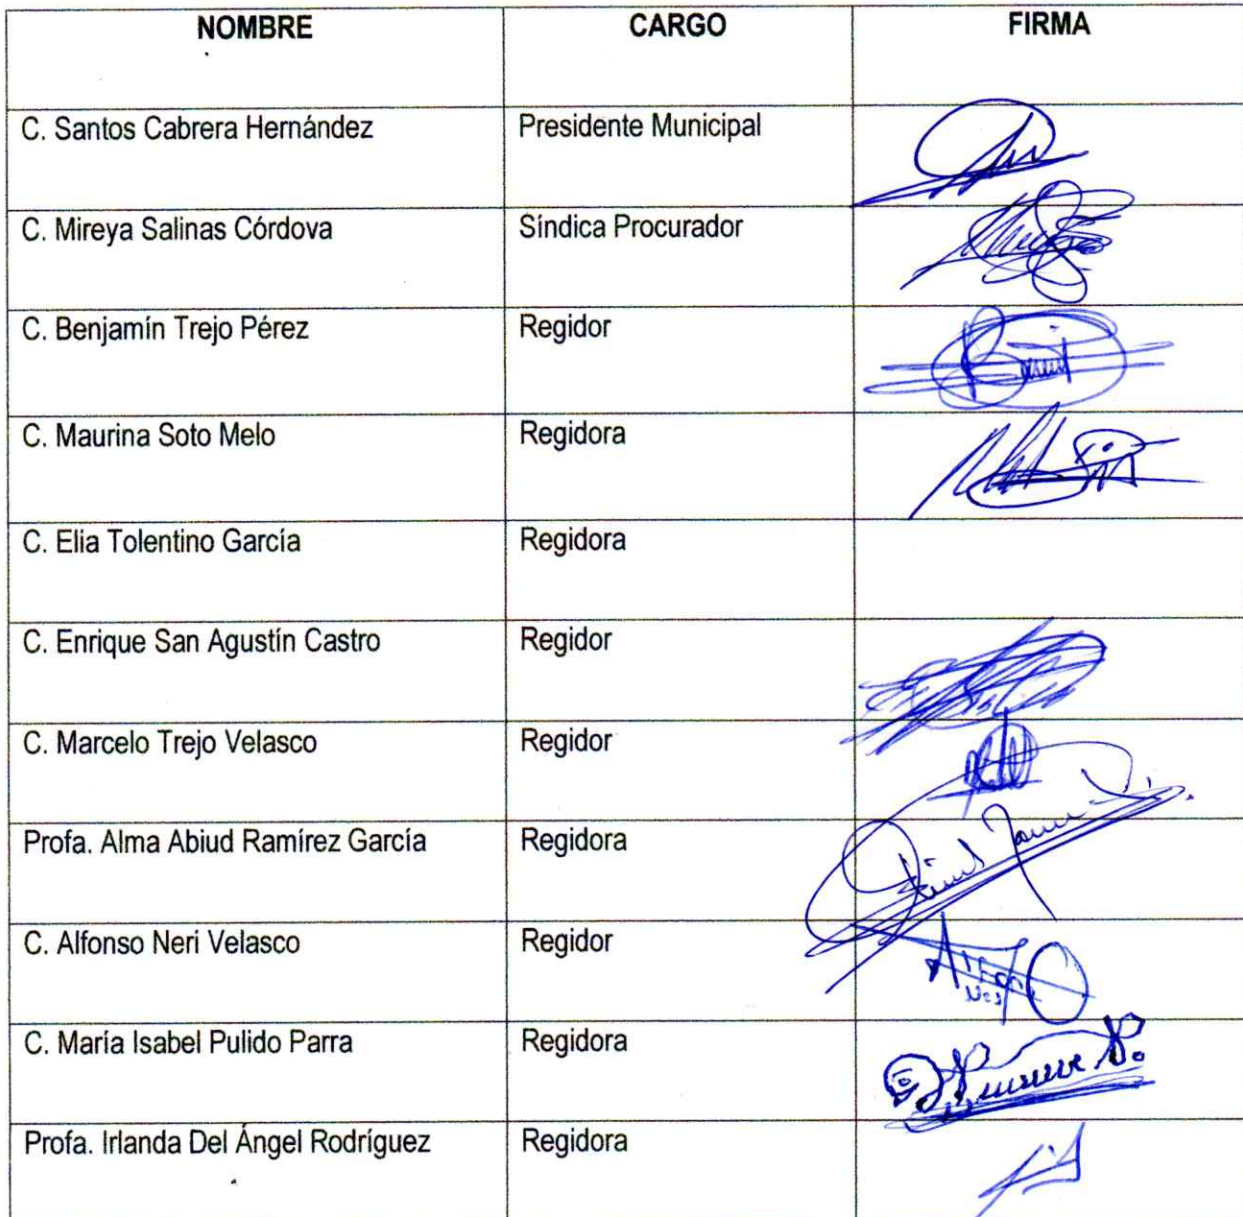 NOMBRE CARGO FIRMA
C. Santos Cabrera Hernández Presidente Municipal
C. Mireya Salinas Córdova Síndica Procurador
C. Benjamín Trejo Pérez Regidor
C. Maurina Soto Melo Regidora
C. Elia Tolentino García Regidora
C. Enrique San Agustín Castro Regidor
C. Marcelo Trejo Velasco Regidor
Profa. Alma Abiud Ramírez García Regidora
C. Alfonso Neri Velasco Regidor
C. María Isabel Pulido Parra Regidora
Profa. Irlanda Del Ángel Rodríguez Regidora